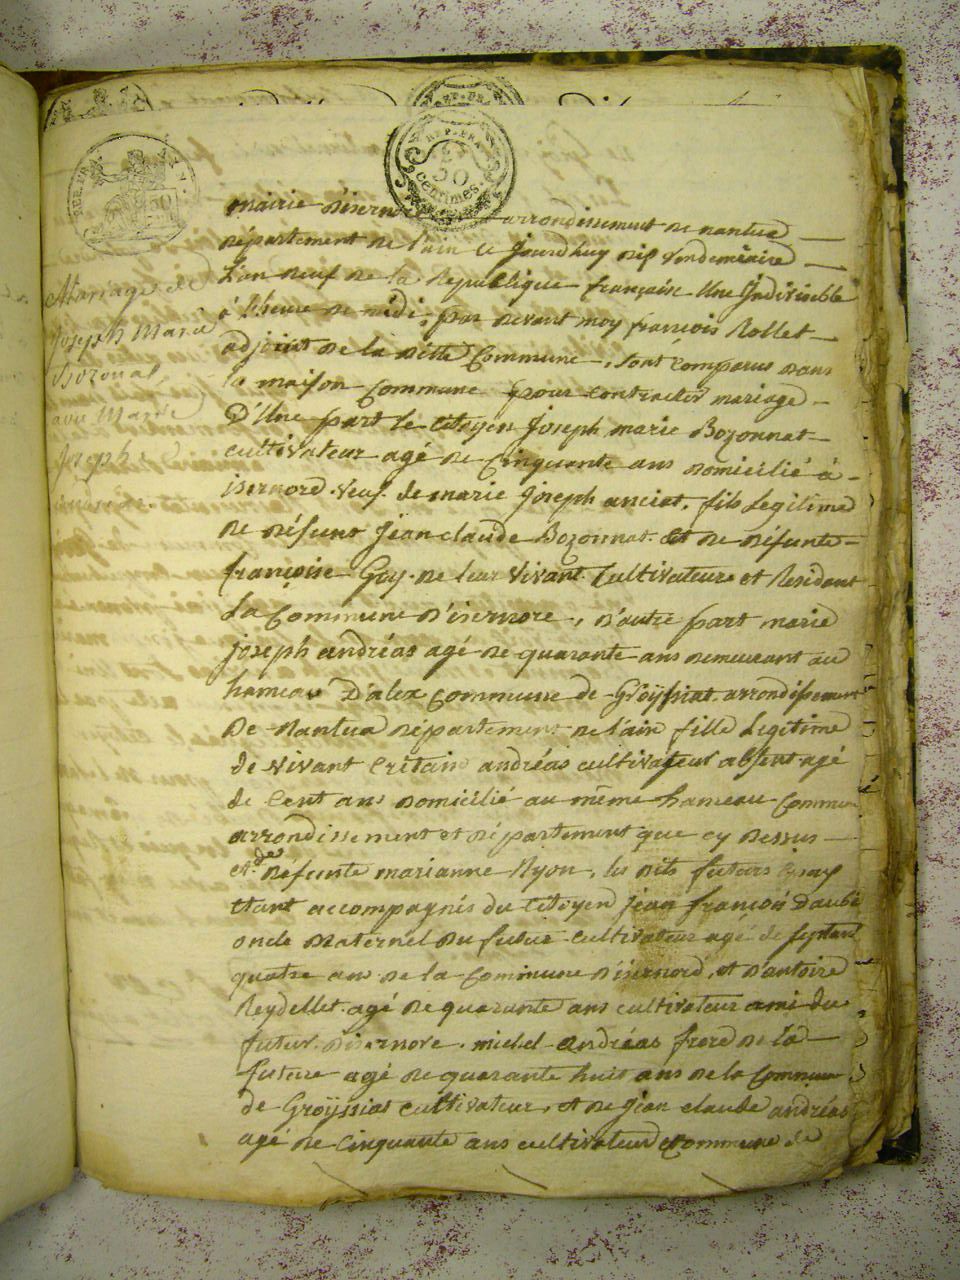 REP. FRA.
50
centimes
Mariage de
Joseph Marie
Bozonat,
avec Marie
Joseph
mairie d'isernore arrondissement de nantua
département de l'ain ce Jourdhuy dix Vendemiaire
L'an neuf de la République française Une Indivisible
à l'heure de midi, par devant moy françois Rollet
adjoint de la ditte Commune, sont Comparus dans
la maison Commune pour contracter mariage
D'Une part le citoyen Joseph marie Bozonnat
cultivateur agé de Cinquante ans domicilié à
isernord veuf de marie Joseph anciat, fils Legitime
de défunt Jean claude Bozonnat et de défunte
françoise Goy de leur vivant Cultivateurs et Residant
La Commune D'isernore, d'autre part marie
joseph andréas agé de quarante ans demeurant au
hameau D'alex Commune de Groÿssiat arrondissement
De Nantua département de l'ain fille Legitime
de vivant andréas cultivateur absent agé
de Cent ans domicilié au même hameau Commune
arrondissement et département que cy dessus
et de défunte marianne Nyon, les dits futurs
étant accompagnés du Citoyen jean françois Daubé
oncle Maternel du futur Cultivateur agé de septante
quatre ans de la Commune d'isernord, et d'antoine
Reydellet agé de quarante ans cultivateur ami du
futur d'isernore. michel andréas frere de la
future agé de quarante huit ans de la Commune
de Groÿssiat cultivateur, et de jean claude andréas
agé de Cinquante ans cultivateur commune de